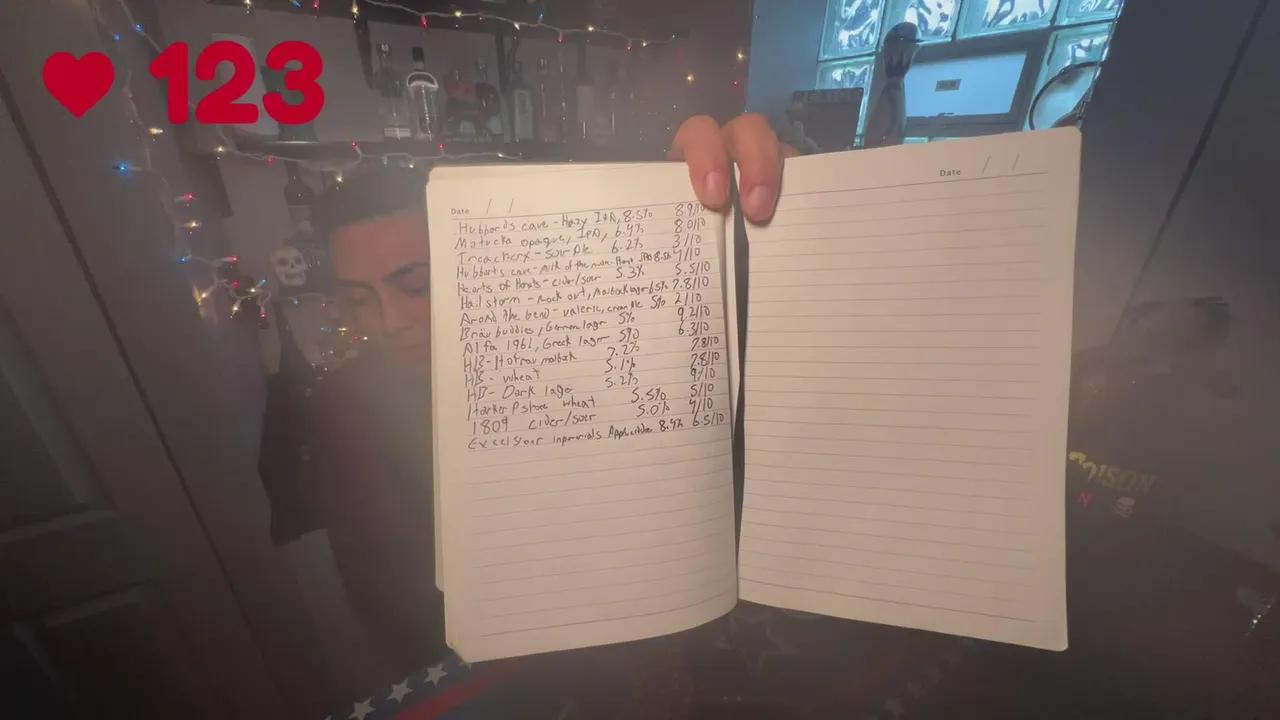 123
Date / /
Hubbards cave - Hazy IPA, 8.5% 8.9/10
Motucka opaque, IPA, 6.4% 8.0/10
Treachery - sour Ale 6.2% 3/10
Hubbarts cave - milk of the 8.5% 7/10
Hearts of Hearts - cider/sour 5.3% 5.5/10
Hailstorm - rock out, Maibock lager 6.5% 7.8/10
Around the bend - valerie, cream Ale 5% 2/10
Bräu buddies, German lager 5% 9.2/10
Alfa 1961, Greek lager 5% 6.3/10
HB - maibock 7.2% 7.8/10
HB - wheat 5.1% 7.8/10
HB - Dark lager 5.2% 9/10
wheat 5.5% 5/10
1809 cider/sour 5.0% 4/10
8.4% 6.5/10
Date / /